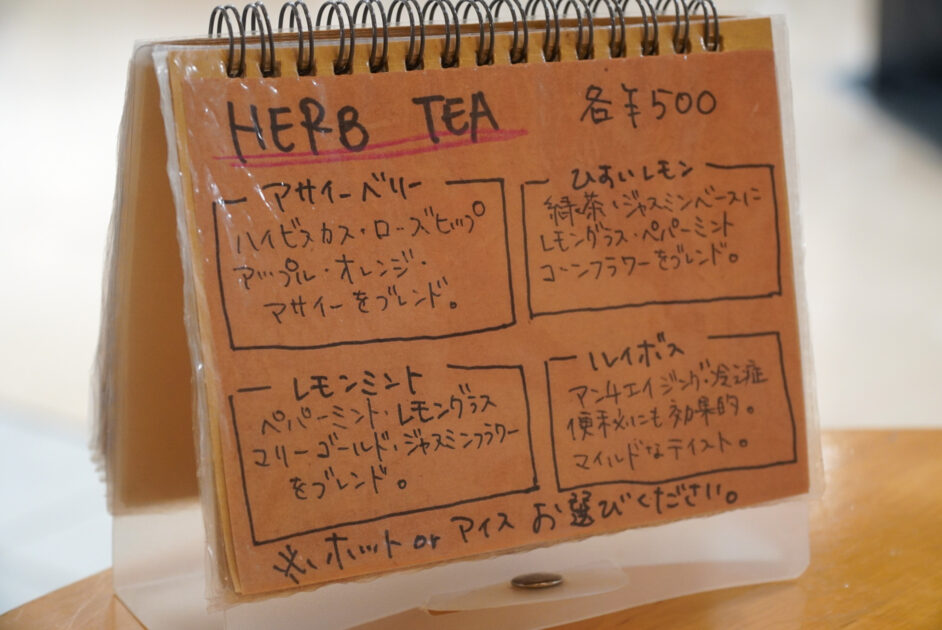 HERB TEA 各¥500
アサイーベリー
ハイビスカス・ローズヒップ
アップル・オレンジ・
アサイーをブレンド。
ひすいレモン
緑茶・ジャスミンベースに
レモングラス・ペパーミント
コーンフラワーをブレンド。
レモンミント
ペパーミント・レモングラス
マリーゴールド・ジャスミンフラワー
をブレンド。
ルイボス
アンチエイジング・冷え症
便秘にも効果的。
マイルドなテイスト。
※ホットorアイスお選びください。